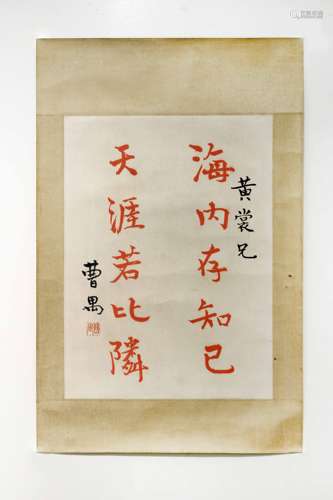 黄裳兄
海内存知己
天涯若比隣
曹禺